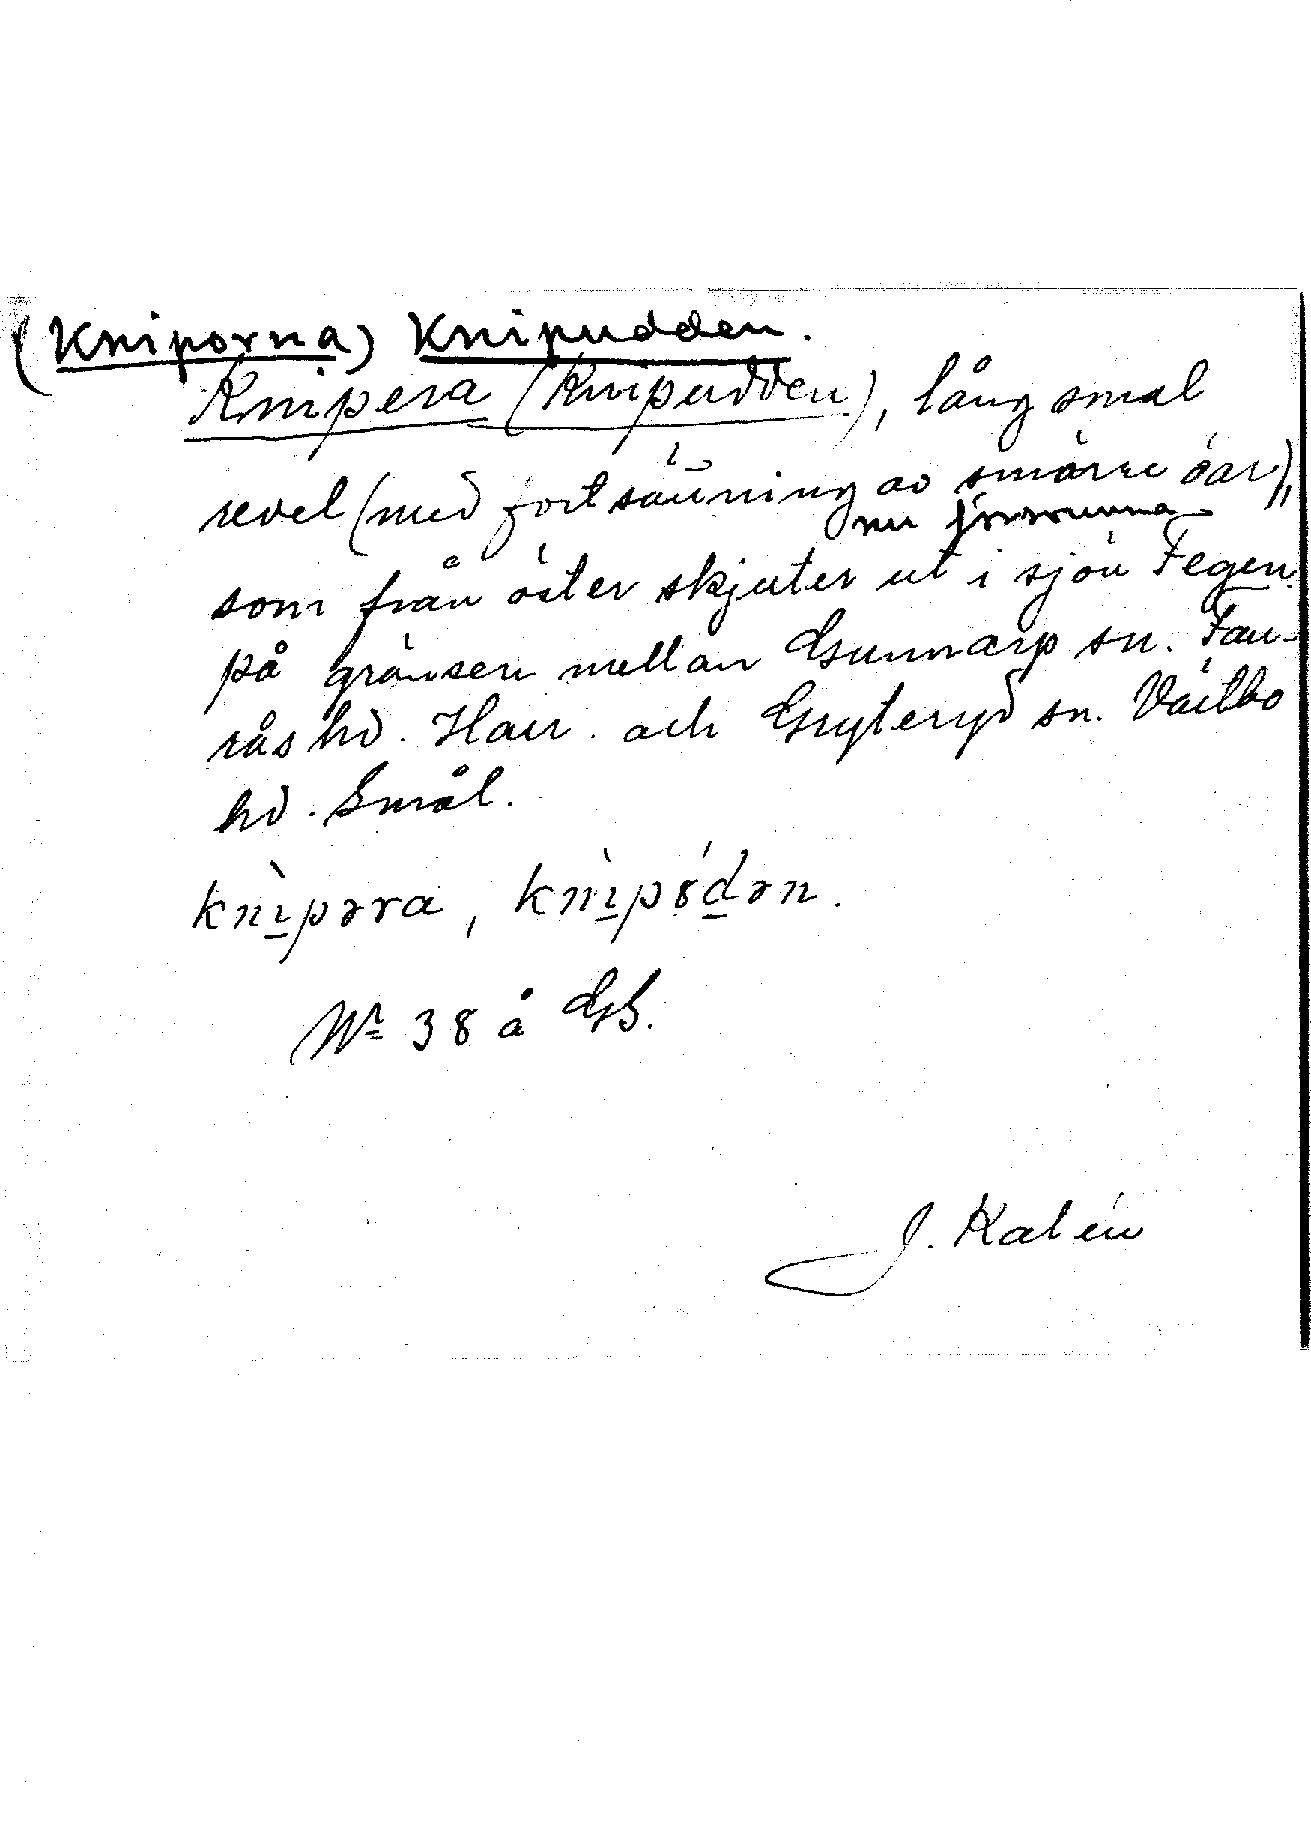 (Kniporna) Knipudden.
Knipera (Knipudden), lång smal
revel (med fortsättning av smärre öar),
nu försvunna
som från öster skjuter ut i sjön Fegen
på gränsen mellan Gunnarp sn. Fau-
rås hd. Hall. och Gryteryd sn. Västbo
hd. Smål.
knìpəra, knìpódən.
Nr 38 å GS.
J. Kalén